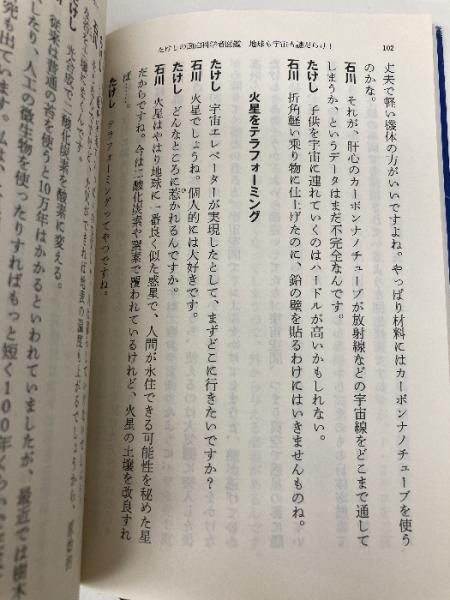 102
たけしの面白科学者図鑑 地球も宇宙も謎だらけ！
丈夫で軽い機体の方がいいですよね。やっぱり材料にはカーボンナノチューブを使う
のかな。
石川 それが、肝心のカーボンナノチューブが放射線などの宇宙線をどこまで通して
しまうか、というデータはまだ不完全なんです。
たけし 子供を宇宙に連れていくのはハードルが高いかもしれない。
石川 折角軽い乗り物に仕上げたのに、鉛の壁を貼るわけにはいきませんものね。
火星をテラフォーミング
たけし 宇宙エレベーターが実現したとして、まずどこに行きたいですか？
石川 火星でしょうね。個人的には大好きです。
たけし どんなところに惹かれるんですか。
石川 火星はやはり地球に一番良く似た惑星で、人間が永住できる可能性を秘めた星
だからですね。今は二酸化炭素や窒素で覆われているけれど、火星の土壌を改良すれ
ば……。
たけし テラフォーミングってやつですね。
石川
酸化炭素を酸素に変える。
従来は普通の苔を使って10万年はかかるといわれていましたが、最近では樹木
したり、人工の微生物を使ったりすればもっと短く100年くらいで